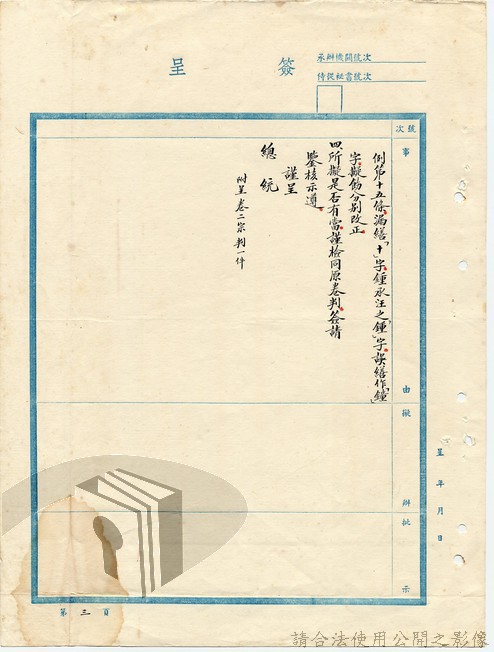 簽呈
承辦機關號次
侍從祕書號次
號次
事
由
擬
辦
批
示
例第十五條漏繕「十」字鍾承汪之「鍾」字誤繕作「鐘」
字擬飭分別改正
四、所擬是否有當謹檢同原卷判簽請
鑒核示遵
謹呈
總統
附呈卷二宗判一件
呈 年 月 日
第三頁
請合法使用公開之影像